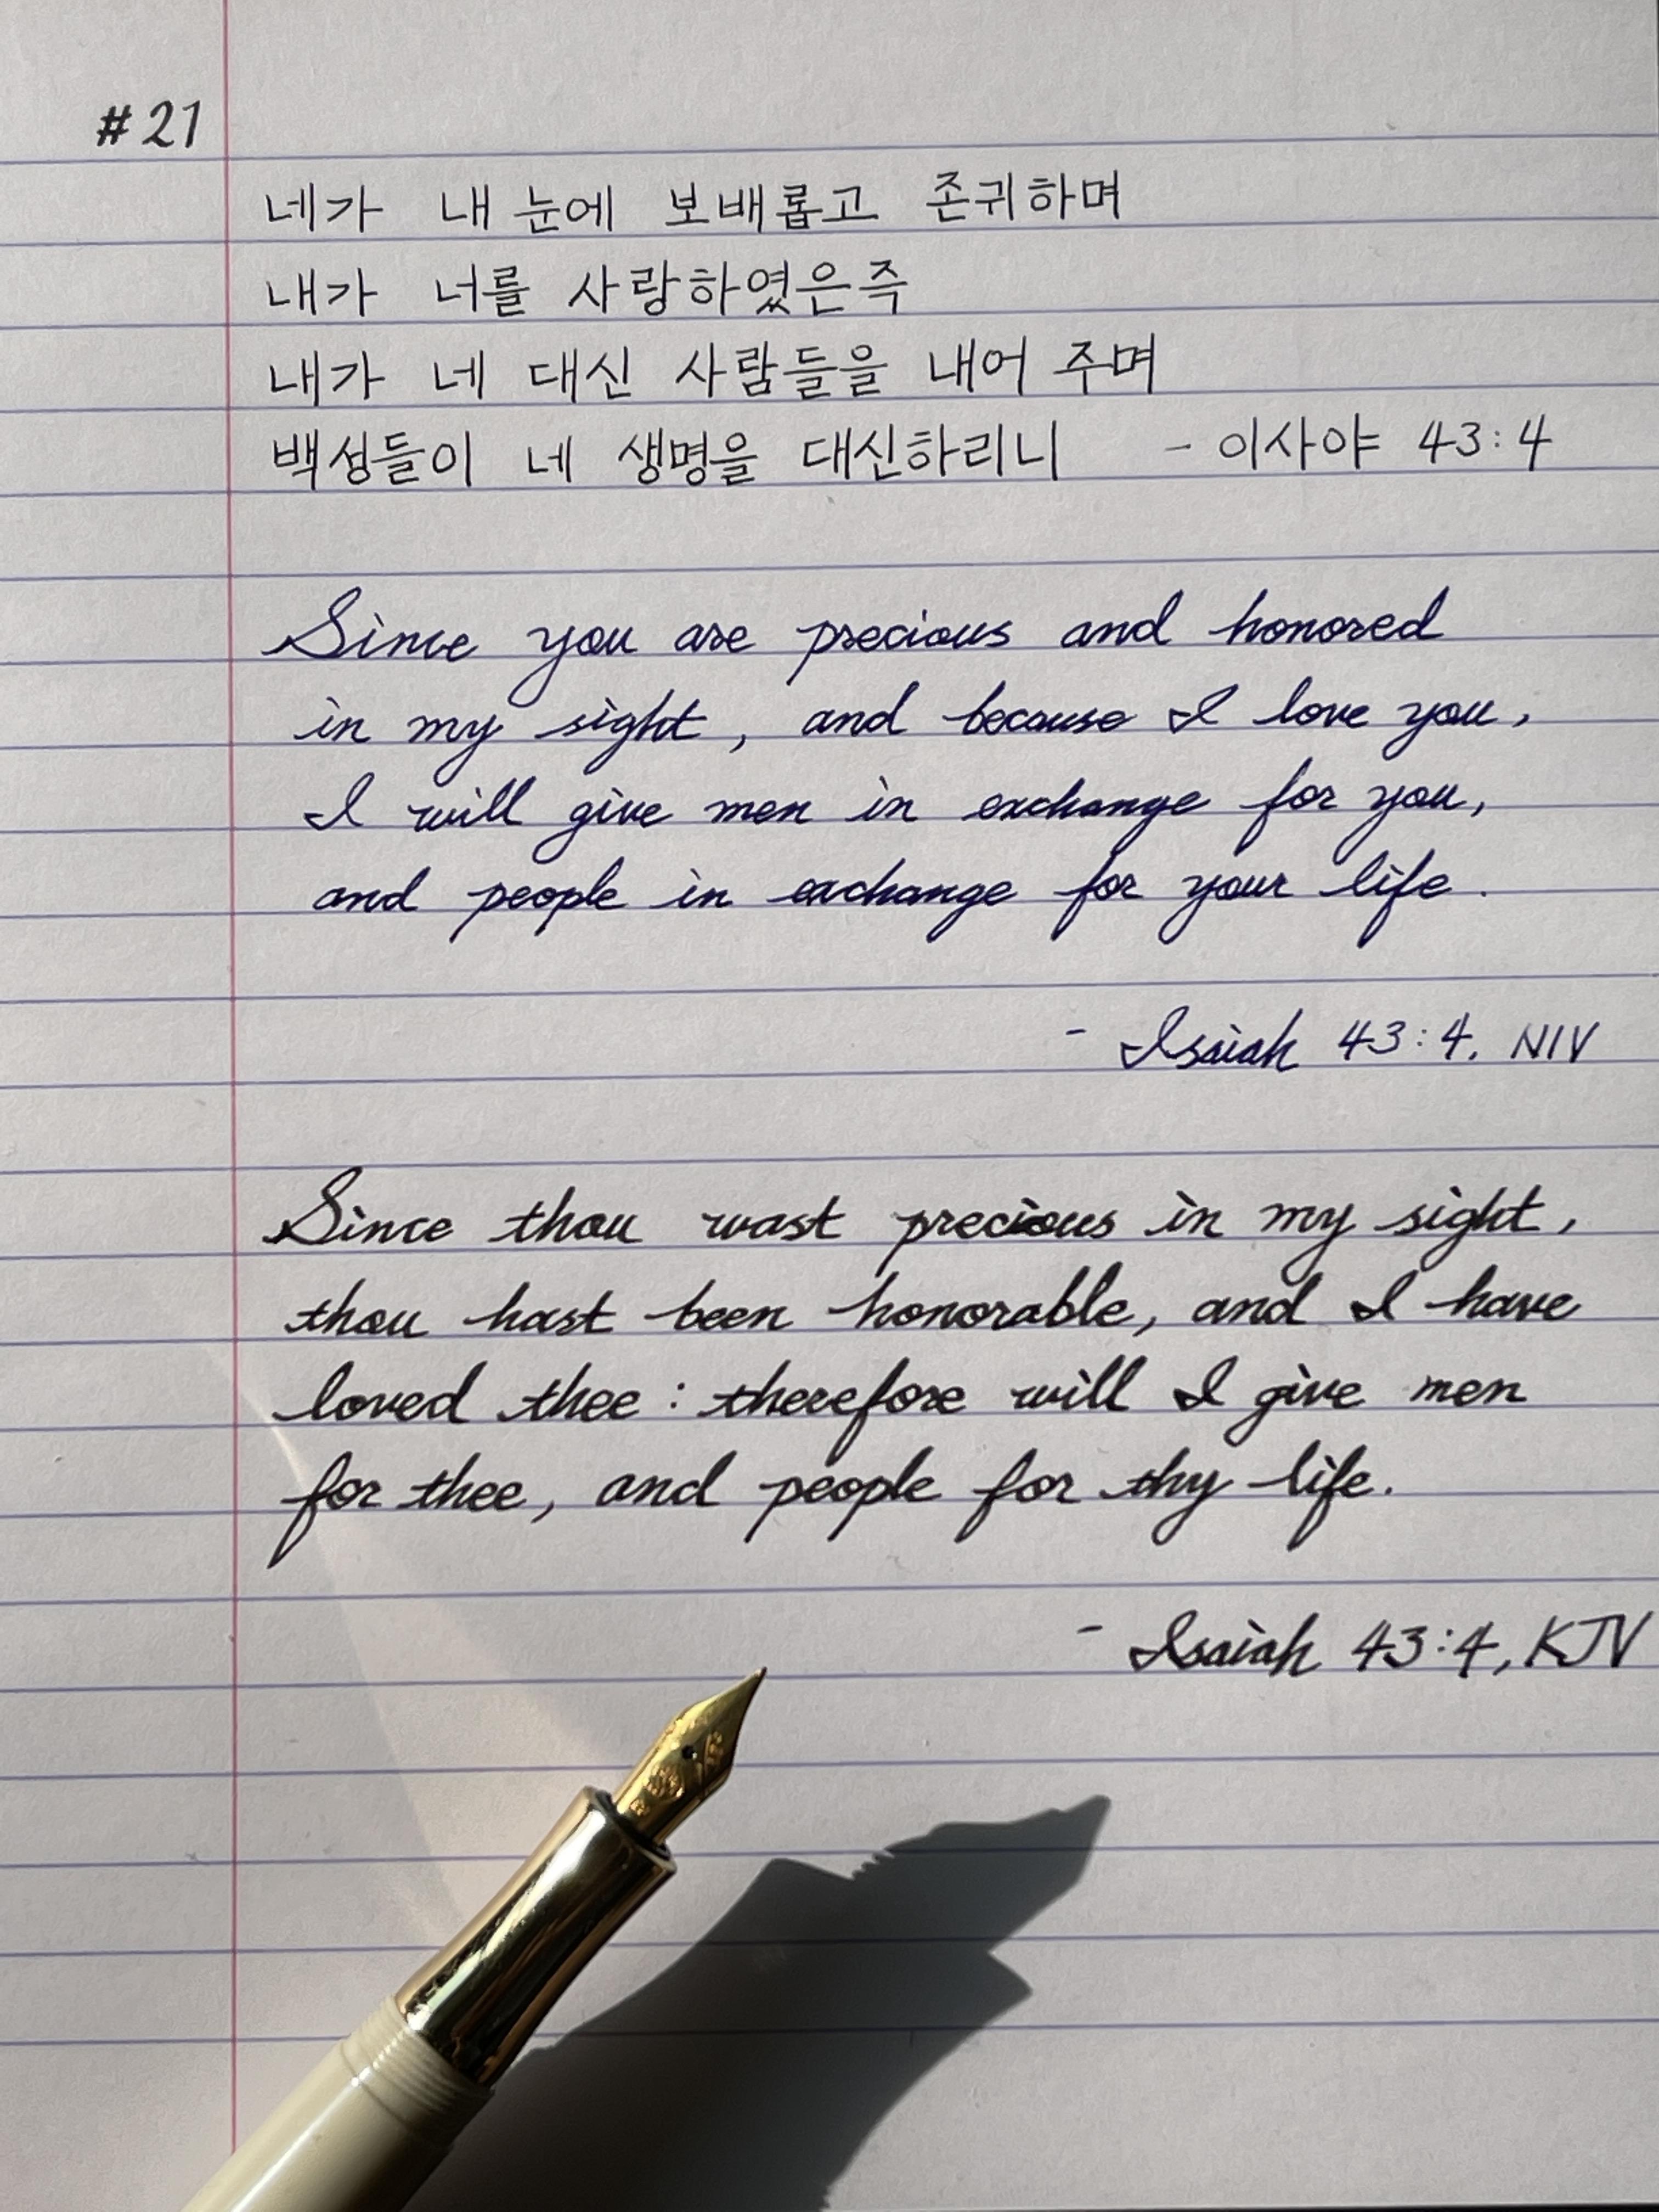 #21
네가 내 눈에 보배롭고 존귀하며
내가 너를 사랑하였은즉
내가 네 대신 사람들을 내어 주며
백성들이 네 생명을 대신하리니 - 이사야 43:4
Since you are precious and honored
in my sight, and because I love you,
I will give men in exchange for you,
and people in exchange for your life.
- Isaiah 43:4, NIV
Since thou wast precious in my sight,
thou hast been honorable, and I have
loved thee: therefore will I give men
for thee, and people for thy life.
- Isaiah 43:4, KJV